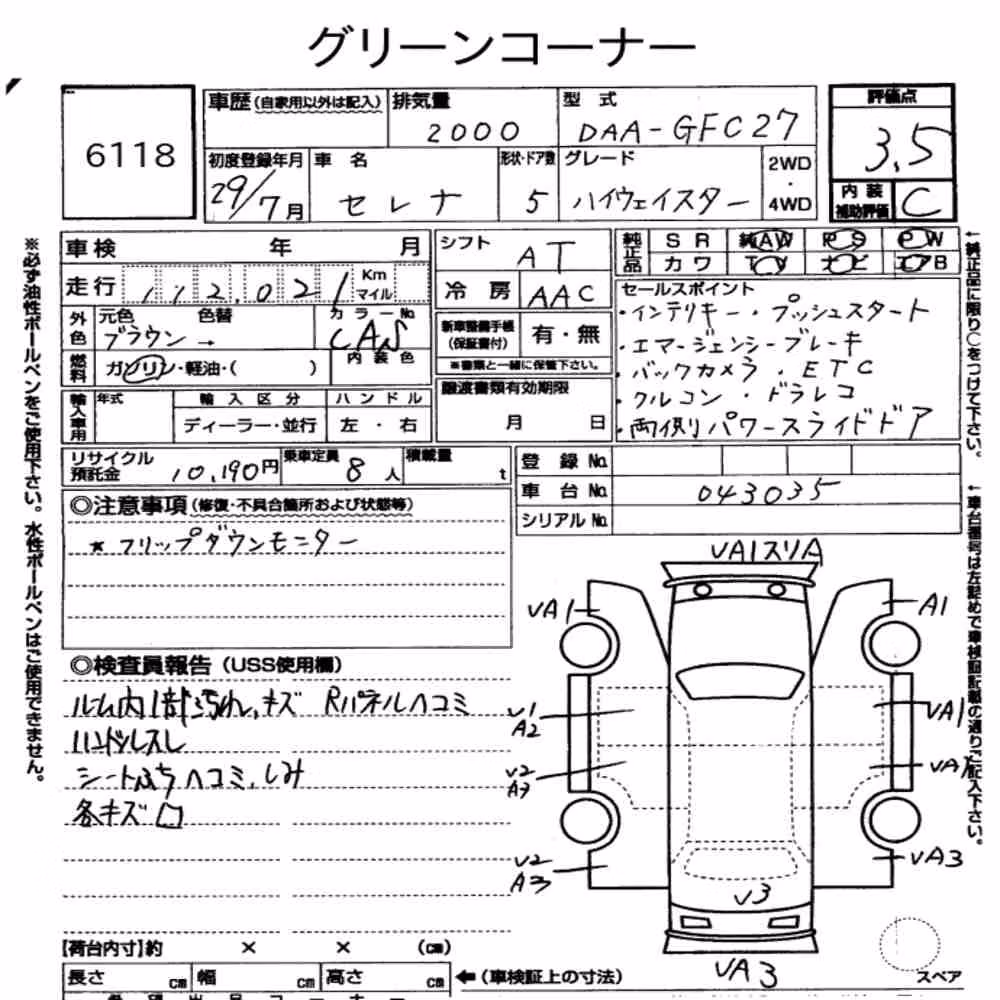 グリーンコーナー
6118
車歴 (自家用以外は記入) 排気量 型式 評価点
2000 DAA-GFC27 3.5
初度登録年月 車名 形状・ドア数 グレード 2WD・4WD 内装補助評価
29/7月 セレナ 5 ハイウェイスター C
※必ず油性ボールペンをご使用下さい。水性ボールペンはご使用できません。
車検 年 月 シフト AT 純正品 SR 純AW PS PW
走行 112,021 Km マイル 冷房 AAC カワ TV ナビ エアB
外色 元色 色替 カラーNo
ブラウン → CAN
燃料 ガソリン・軽油・( ) 内装色
新車整備手帳(保証書付) 有・無
※書類と一緒に保管下さい。
譲渡書類有効期限
月 日
輸入車用 年式 輸入区分 ハンドル
ディーラー・並行 左・右
セールスポイント
・インテリキー・プッシュスタート
・エマージェンシーブレーキ
・バックカメラ・ETC
・クルコン・ドラレコ
・両側パワースライドドア
←純正品に限り○をつけて下さい。
リサイクル預託金 10,190円 乗車定員 8人 積載量 t
登録No.
車台No. 043035
シリアルNo.
←車台番号は左詰めで車検証記載の通りご記入下さい。
◎注意事項 (修復・不具合箇所および状態等)
*フリップダウンモニター
◎検査員報告 (USS使用欄)
ルーム内1部汚れ、キズ Rパネルヘコミ
ハンドルスレ
シートふちヘコミ、しみ
各キズ□
VA1スリA
VA1
A1
V1
A2
VA1
V2
A3
VA1
V2
A3
VA3
V3
VA3
スペア
【荷台内寸】約 × × (cm)
長さ cm 幅 cm 高さ cm ←(車検証上の寸法)